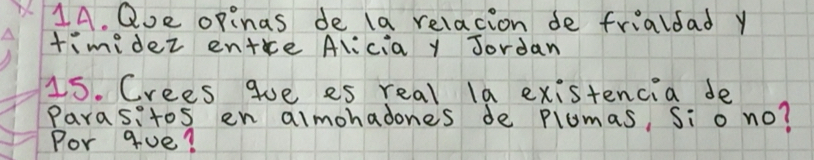 14. Que opinas de la relacion de frialdad y
timidez entre Alicia y Jordan
15. Crees que es real la existencia de
Parasitos en almohadones de Plumas, Si o no?
Por que?